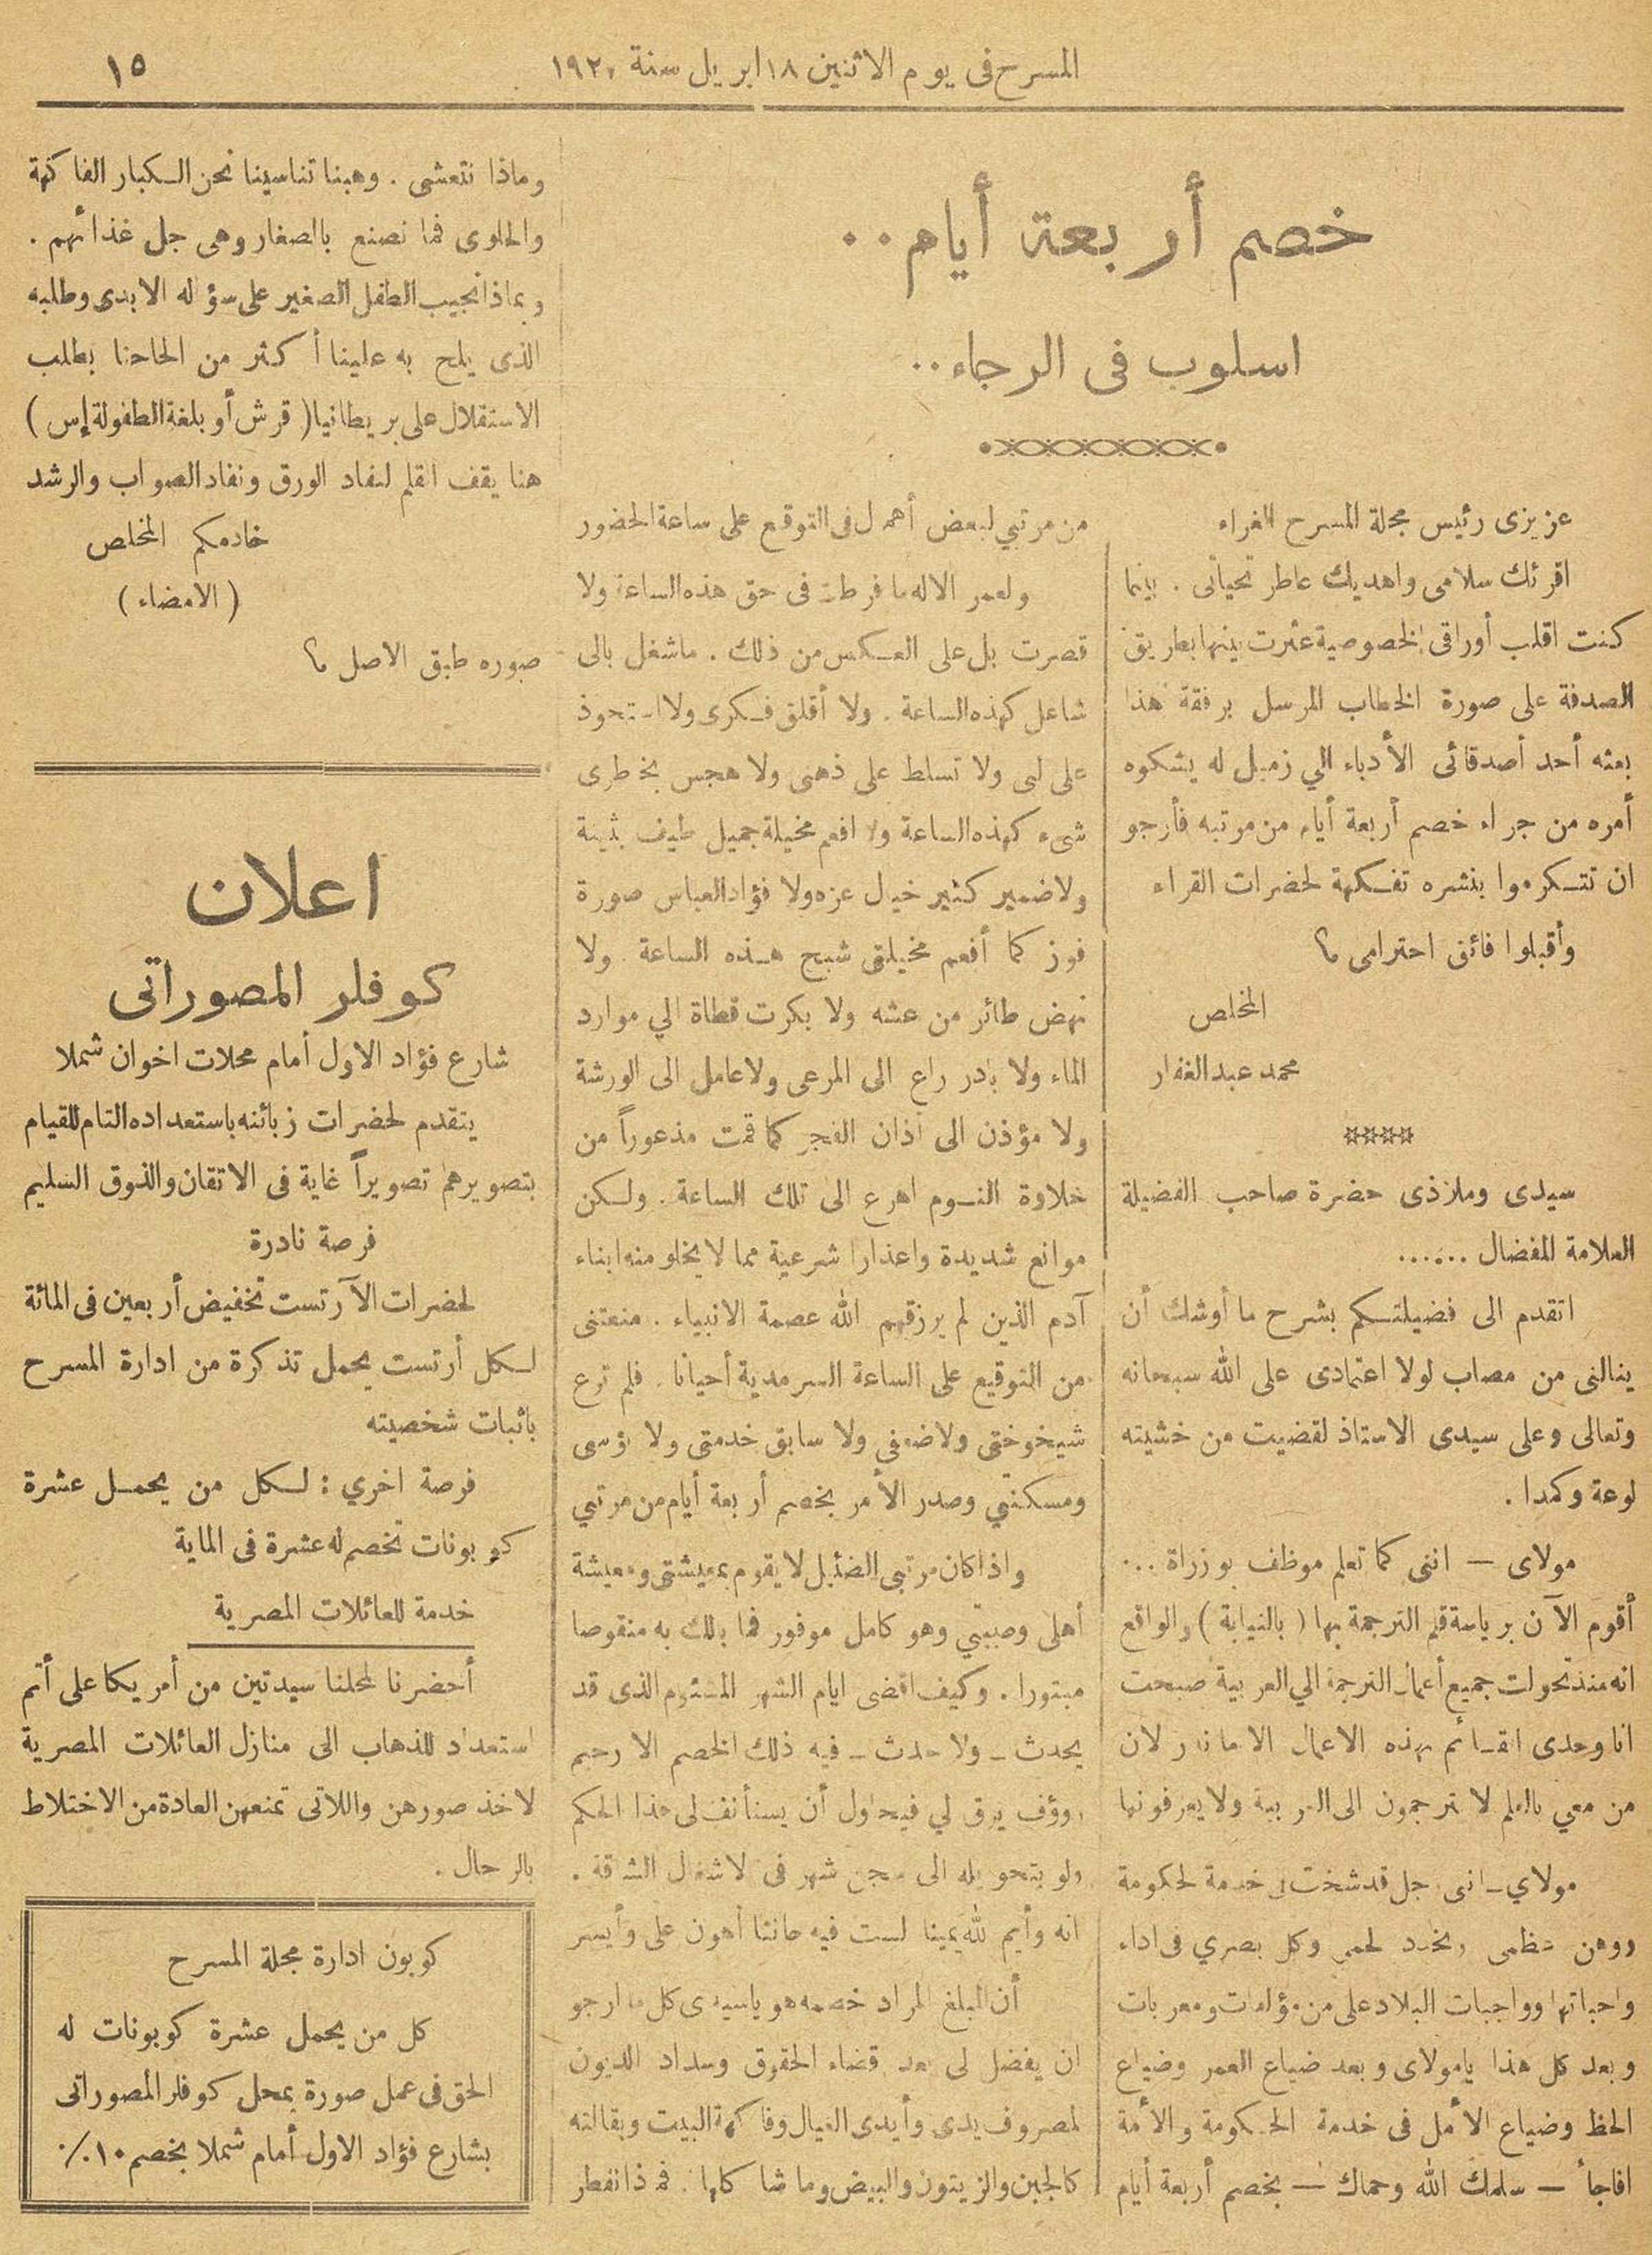 المسرح فى يوم الاثنين ١٨ ابريل سنة ١٩٢
١٥
خصم أربعة أيام ..
اسلوب فى الرجاء ..
عزيزى رئيس مجلة المسرح الغراء
اقرئك سلامى واهديك عاطر تحياتى . بينما
كنت اقلب أوراقى الخصوصية عثرت بينها بطريق
الصدفة على صورة الخطاب المرسل برفقة هذا
بعثه أحد أصدقائى الأدباء الي زميل له يشكوه
أمره من جراء خصم أربعة أيام من مرتبه فأرجو
ان تتكرموا بنشره تفكهة لحضرات القراء
وأقبلوا فائق احترامى ؟
المخلص
محمد عبد الغفار
سيدى وملاذى حضرة صاحب الفضيلة
العلامة المفضال ......
اتقدم الى فضيلتكم بشرح ما أوشك أن
ينالنى من مصاب لولا اعتمادى على الله سبحانه
وتعالى وعلى سيدى الاستاذ لقضيت من خشيته
لوعة وكمدا .
مولاى — اننى كما تعلم موظف بوزراة ..
أقوم الآن برياسة قلم الترجمة بها ( بالنيابة ) والواقع
انه منذ تحولت جميع أعمال الترجمة الي العربية صبحت
انا وحدى القائم بهذه الاعمال الا ما ندر لان
من معي بالقلم لا يترجمون الى العربية ولا يعرفونها
مولاي ـ انى رجل قد شخت فى خدمة لحكومة
ووهن عظمى وتخدد لحمى وكل بصري فى اداء
واجباتها وواجبات البلاد على من مؤلفات ومعربات
وبعد كل هذا يامولاى وبعد ضياع العمر وضياع
الحظ وضياع الأمل فى خدمة الحكومة والأمة
افاجأ — سلمك الله وحماك — بخصم أربعة أيام
من مرتبي لبعض أهمال فى التوقع على ساعة الحضور
ولعمر الاله ما فرطت فى حق هذه الساعة ولا
قصرت بل على العكس من ذلك . ماشغل بالى
شاغل كهذه الساعة . ولا أقلق فكرى ولا استحوذ
على لبى ولا تسلط على ذهنى ولا هجس بخاطرى
شىء كهذه الساعة ولا افعم مخيلة جميل طيف بثينة
ولا ضمير كثير خيال عزه ولا فؤاد العباس صورة
فوز كما أفعم مخيلتى شبح هذه الساعة . ولا
نهض طائر من عشه ولا بكرت قطاة الي موارد
الماء ولا بادر راع الى المرعى ولا عامل الى الورشة
ولا مؤذن الى اذان الفجر كما قمت مذعوراً من
خلاوة النوم اهرع الى تلك الساعة . ولكن
موانع شديدة واعذارا شرعية مما لا يخلو منه ابناء
آدم الذين لم يرزقهم الله عصمة الانبياء . منعتنى
من التوقيع على الساعة السرمدية أحيانا . فلم ترع
شيخوختى ولا ضعفى ولا سابق خدمتى ولا بؤسى
ومسكنتي وصدر الأمر بخصم أربعة أيام من مرتبي
واذا كان مرتبى الضئيل لا يقوم بمعيشتى ومعيشة
أهلى وصبيتي وهو كامل موفور فما بالك به منقوصا
مبتورا . وكيف اقضى ايام الشهر المشئوم الذى قد
يحدث ـ ولا حدث ـ فيه ذلك الخصم الا رحيم
رؤف يرق لي فيحاول أن يستأنف لى هذا الحكم
ولو بتحويله الى سجن شهر فى لاشغال الشاقة .
انه وأيم لله يمينا لست فيه حانثا أهون على وأيسر
أن المبلغ المراد خصمه هو ياسيدى كل ما ارجو
ان يفضل لى بعد قضاء الحقوق وسداد الديون
لمصروف يدى وأيدى العيال وفاكهة البيت وبقالته
كالجبن والزيتون والبيض وما شاكلها . فماذا نفطر
وماذا نتعشى . وهبنا تناسينا نحن الكبار الفاكهة
والحلوى فما نصنع بالصغار وهى جل غذائهم .
وبماذا نجيب الطفل الصغير على سؤاله الابدى وطلبه
الذى يلح به علينا أكثر من الحاحنا بطلب
الاستقلال على بريطانيا ( قرش أو بلغة الطفولة إس )
هنا يقف القلم لنفاد الورق ونفاد الصواب والرشد
خادمكم المخلص
( الامضاء )
صوره طبق الاصل ؟
اعلان
كوفلر المصوراتى
شارع فؤاد الاول أمام محلات اخوان شملا
يتقدم لحضرات زبائنه باستعداده التام للقيام
بتصويرهم تصويراً غاية فى الاتقان والذوق السليم
فرصة نادرة
لحضرات الآرتست تخفيض أربعين فى المائة
لكل أرتست يحمل تذكرة من ادارة المسرح
باثبات شخصيته
فرصة اخري : لكل من يحمل عشرة
كوبونات تخصم له عشرة فى الماية
خدمة للعائلات المصرية
أحضرنا لمحلنا سيدتين من أمريكا على أتم
استعداد للذهاب الى منازل العائلات المصرية
لاخذ صورهن واللاتى تمنعهن العادة من الاختلاط
بالرحال .
كوبون ادارة مجلة المسرح
كل من يحمل عشرة كوبونات له
الحق فى عمل صورة بمحل كوفلر المصوراتى
بشارع فؤاد الاول أمام شملا بخصم ١٠ ٪